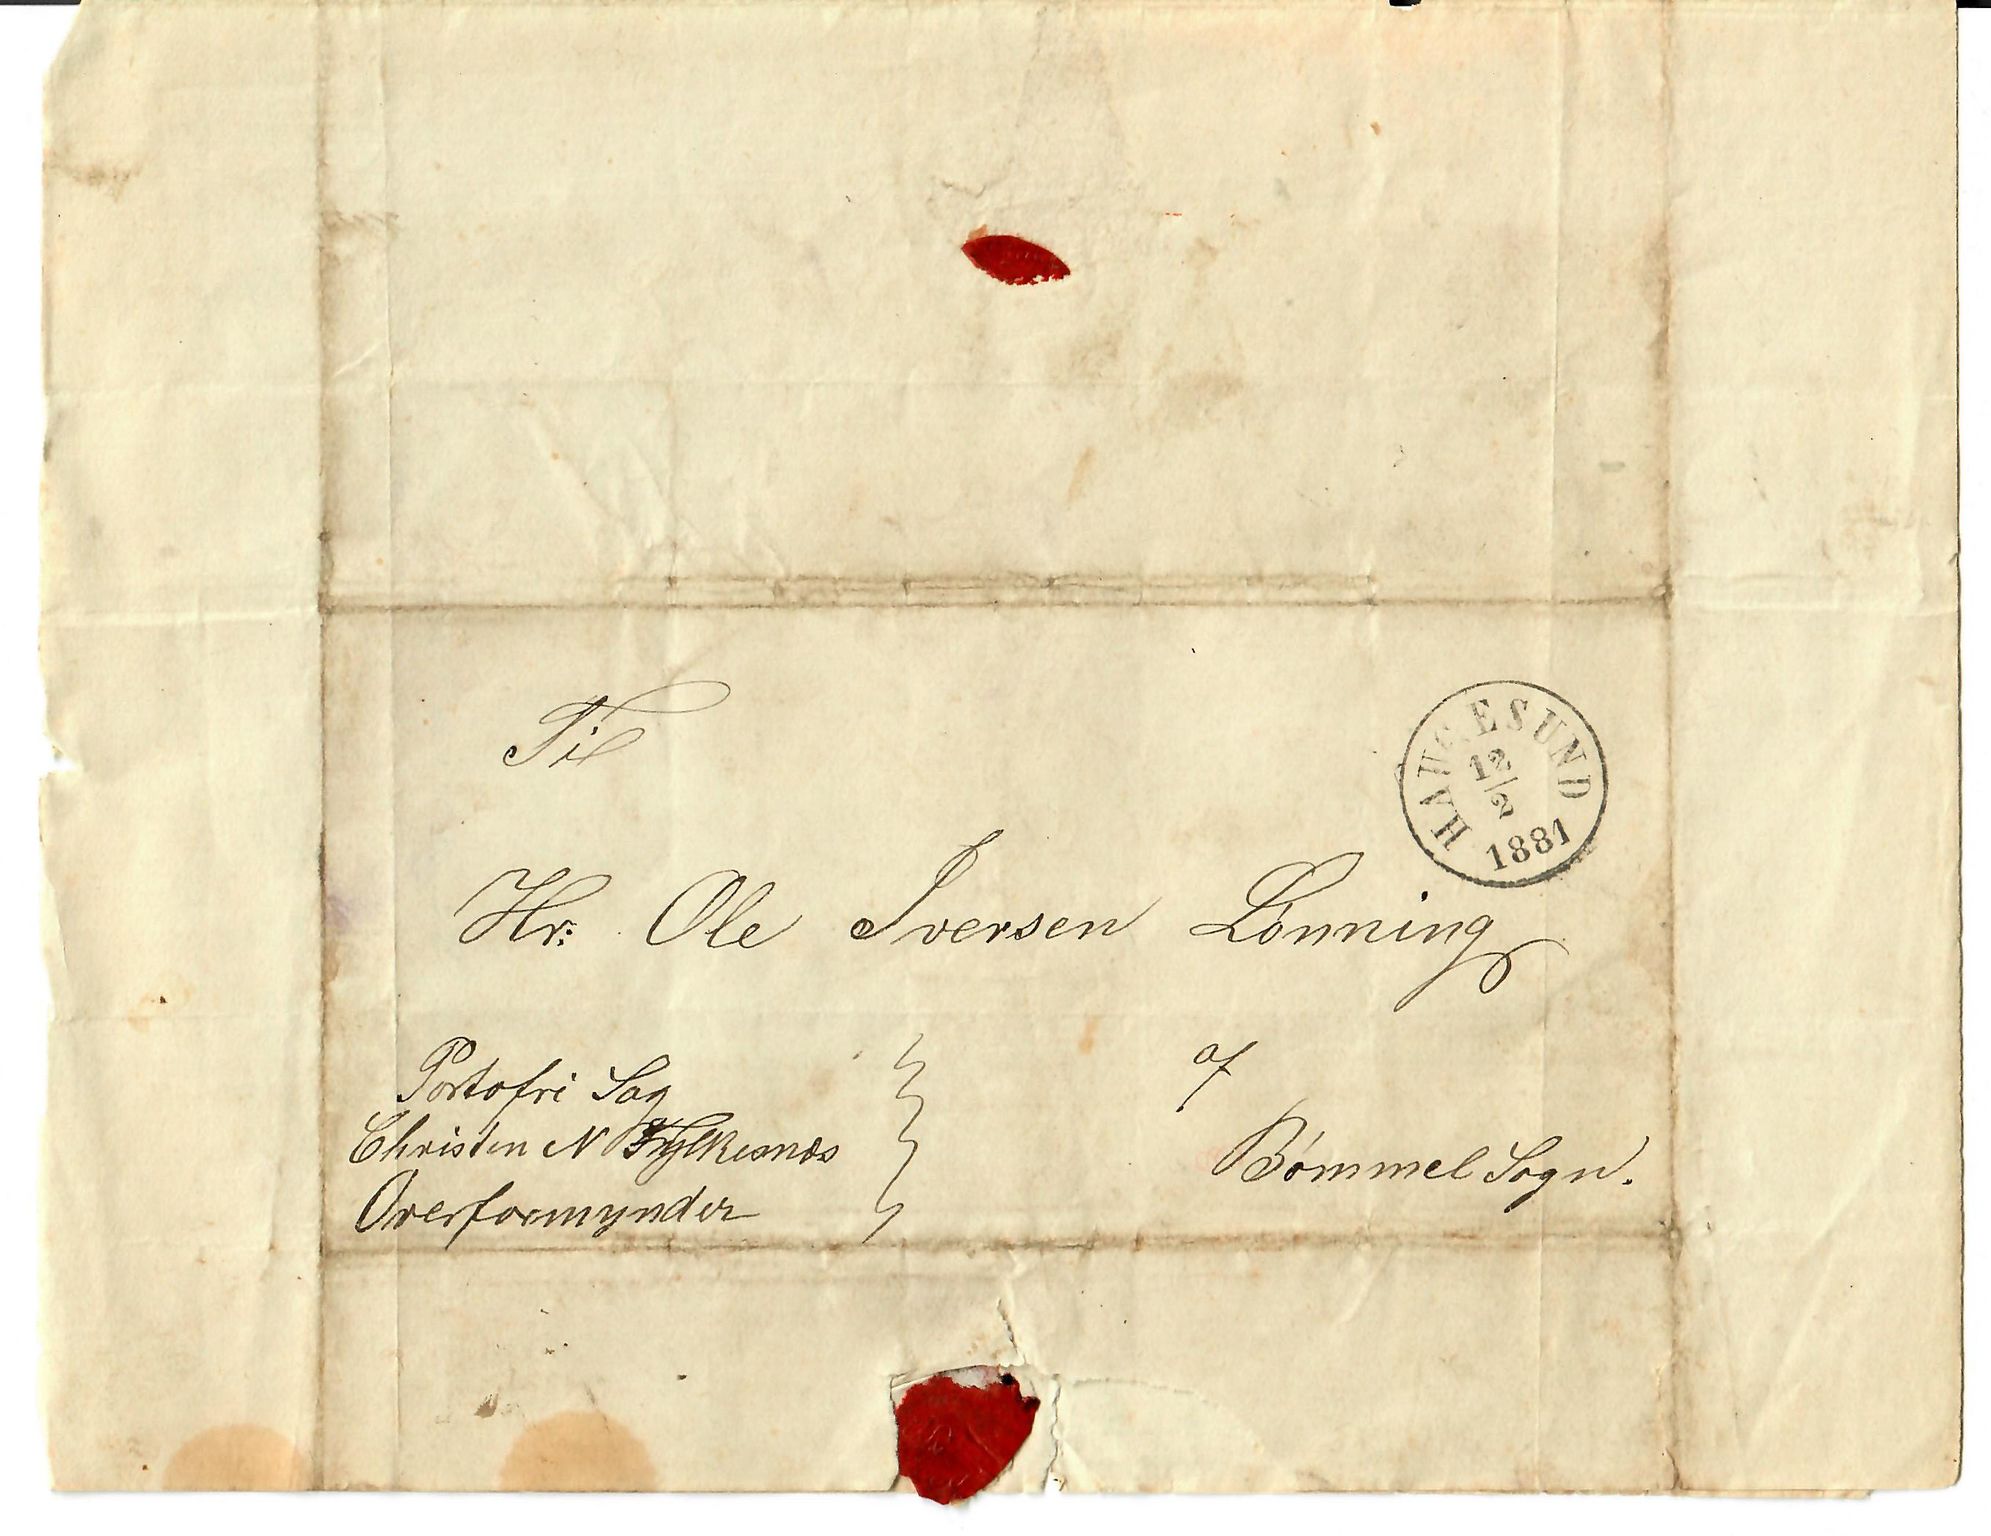 Til
HAUGESUND
12/2
1881
Hr: Ole Iversen Lønning
af
Bømmel Sogn.
Portofri Sag
Christen N Fylkesnæs
Overformynder